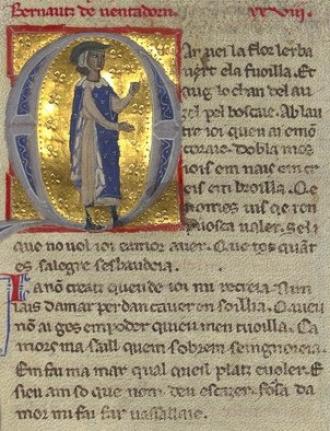 Bernautz de uentadorn. XXVIII.
Qan uei la flor lerba
uert e la fuoilla. Et
aug lo chan del au
zel pel boscatge. Ab lau
tre ioi quen ai e mon
coratge. dobla mos
iois e nais e m cre
is e m broilla. Ce
nom es uis qe ren
puosca ualer. Seli
que no uol ioi et amor auer. Que tot quant
es salegre
Ia non creatz quen de ioi mi recreia. Ni m
lais damar per dan cauer en soillia. Caueu
non ai ges en poder quieu men tuoilla. Ca
mors ma saill quem sobrem seignoreia.
Em fa ma mar qual quel platz e uoler. E
sieu am so que nom deu escazer. forsa da
mor mi fai far uassallatge.